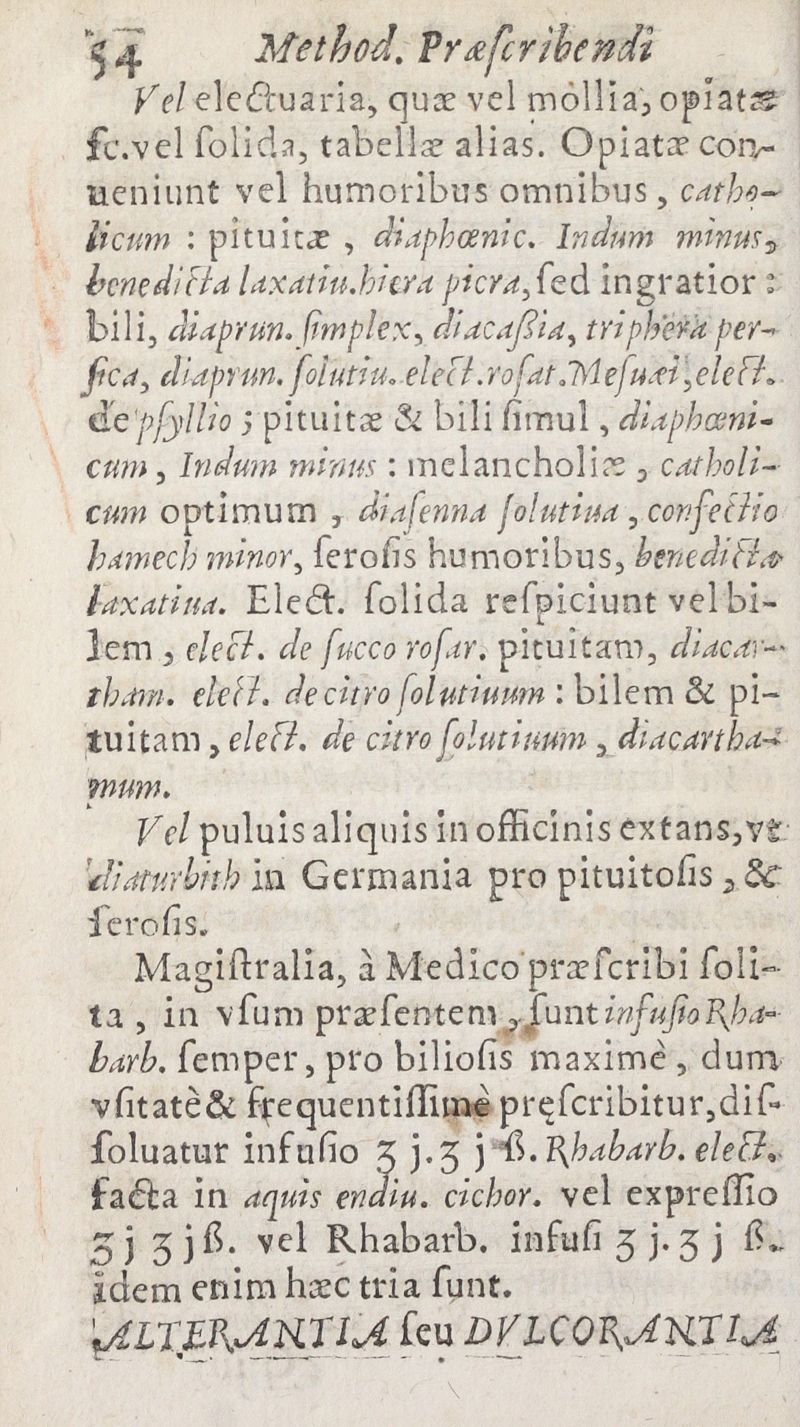 54 Method. Præſcribendi
Vel electuaria, quæ vel mollia, opiatæ
ſc. vel ſolida, tabellæ alias. Opiatæ con-
ueniunt vel humoribus omnibus, catho-
licum : pituitæ, diaphœnic. Indum minus,
benedicta laxatiu. hiera picra, ſed ingratior :
bili, diaprun. ſimplex, diacaßia, triphera per-
ſica, diaprun. ſolutiu. elect. roſat. Meſuæi, elect.
de pſyllio ; pituitæ & bili ſimul, diaphœni-
cum, Indum minus : melancholiæ, catholi-
cum optimum, diaſenna ſolutiua, confectio
hamech minor, ſeroſis humoribus, benedicta
laxatiua. Elect. ſolida reſpiciunt vel bi-
lem, elect. de ſucco roſar. pituitam, diacar-
tham. elect. de citro ſolutiuum : bilem & pi-
tuitam, elect. de citro ſolutiuum, diacartha-
mum.
Vel puluis aliquis in officinis extans, vt
diaturbith in Germania pro pituitoſis, &
ſeroſis.
Magiſtralia, à Medico præſcribi ſoli-
ta, in vſum præſentem, ſunt infuſio Rha-
barb. ſemper, pro bilioſis maximè, dum
vſitatè & frequentiſſimè pręſcribitur, diſ-
ſoluatur infuſio ʒ j. ʒ j ß. Rhabarb. elect.
facta in aquis endiu. cichor. vel expreſſio
ʒ j ʒ j ß. vel Rhabarb. infuſi ʒ j. ʒ j ß.
idem enim hæc tria ſunt.
ALTERANTIA ſeu DVLCORANTIA